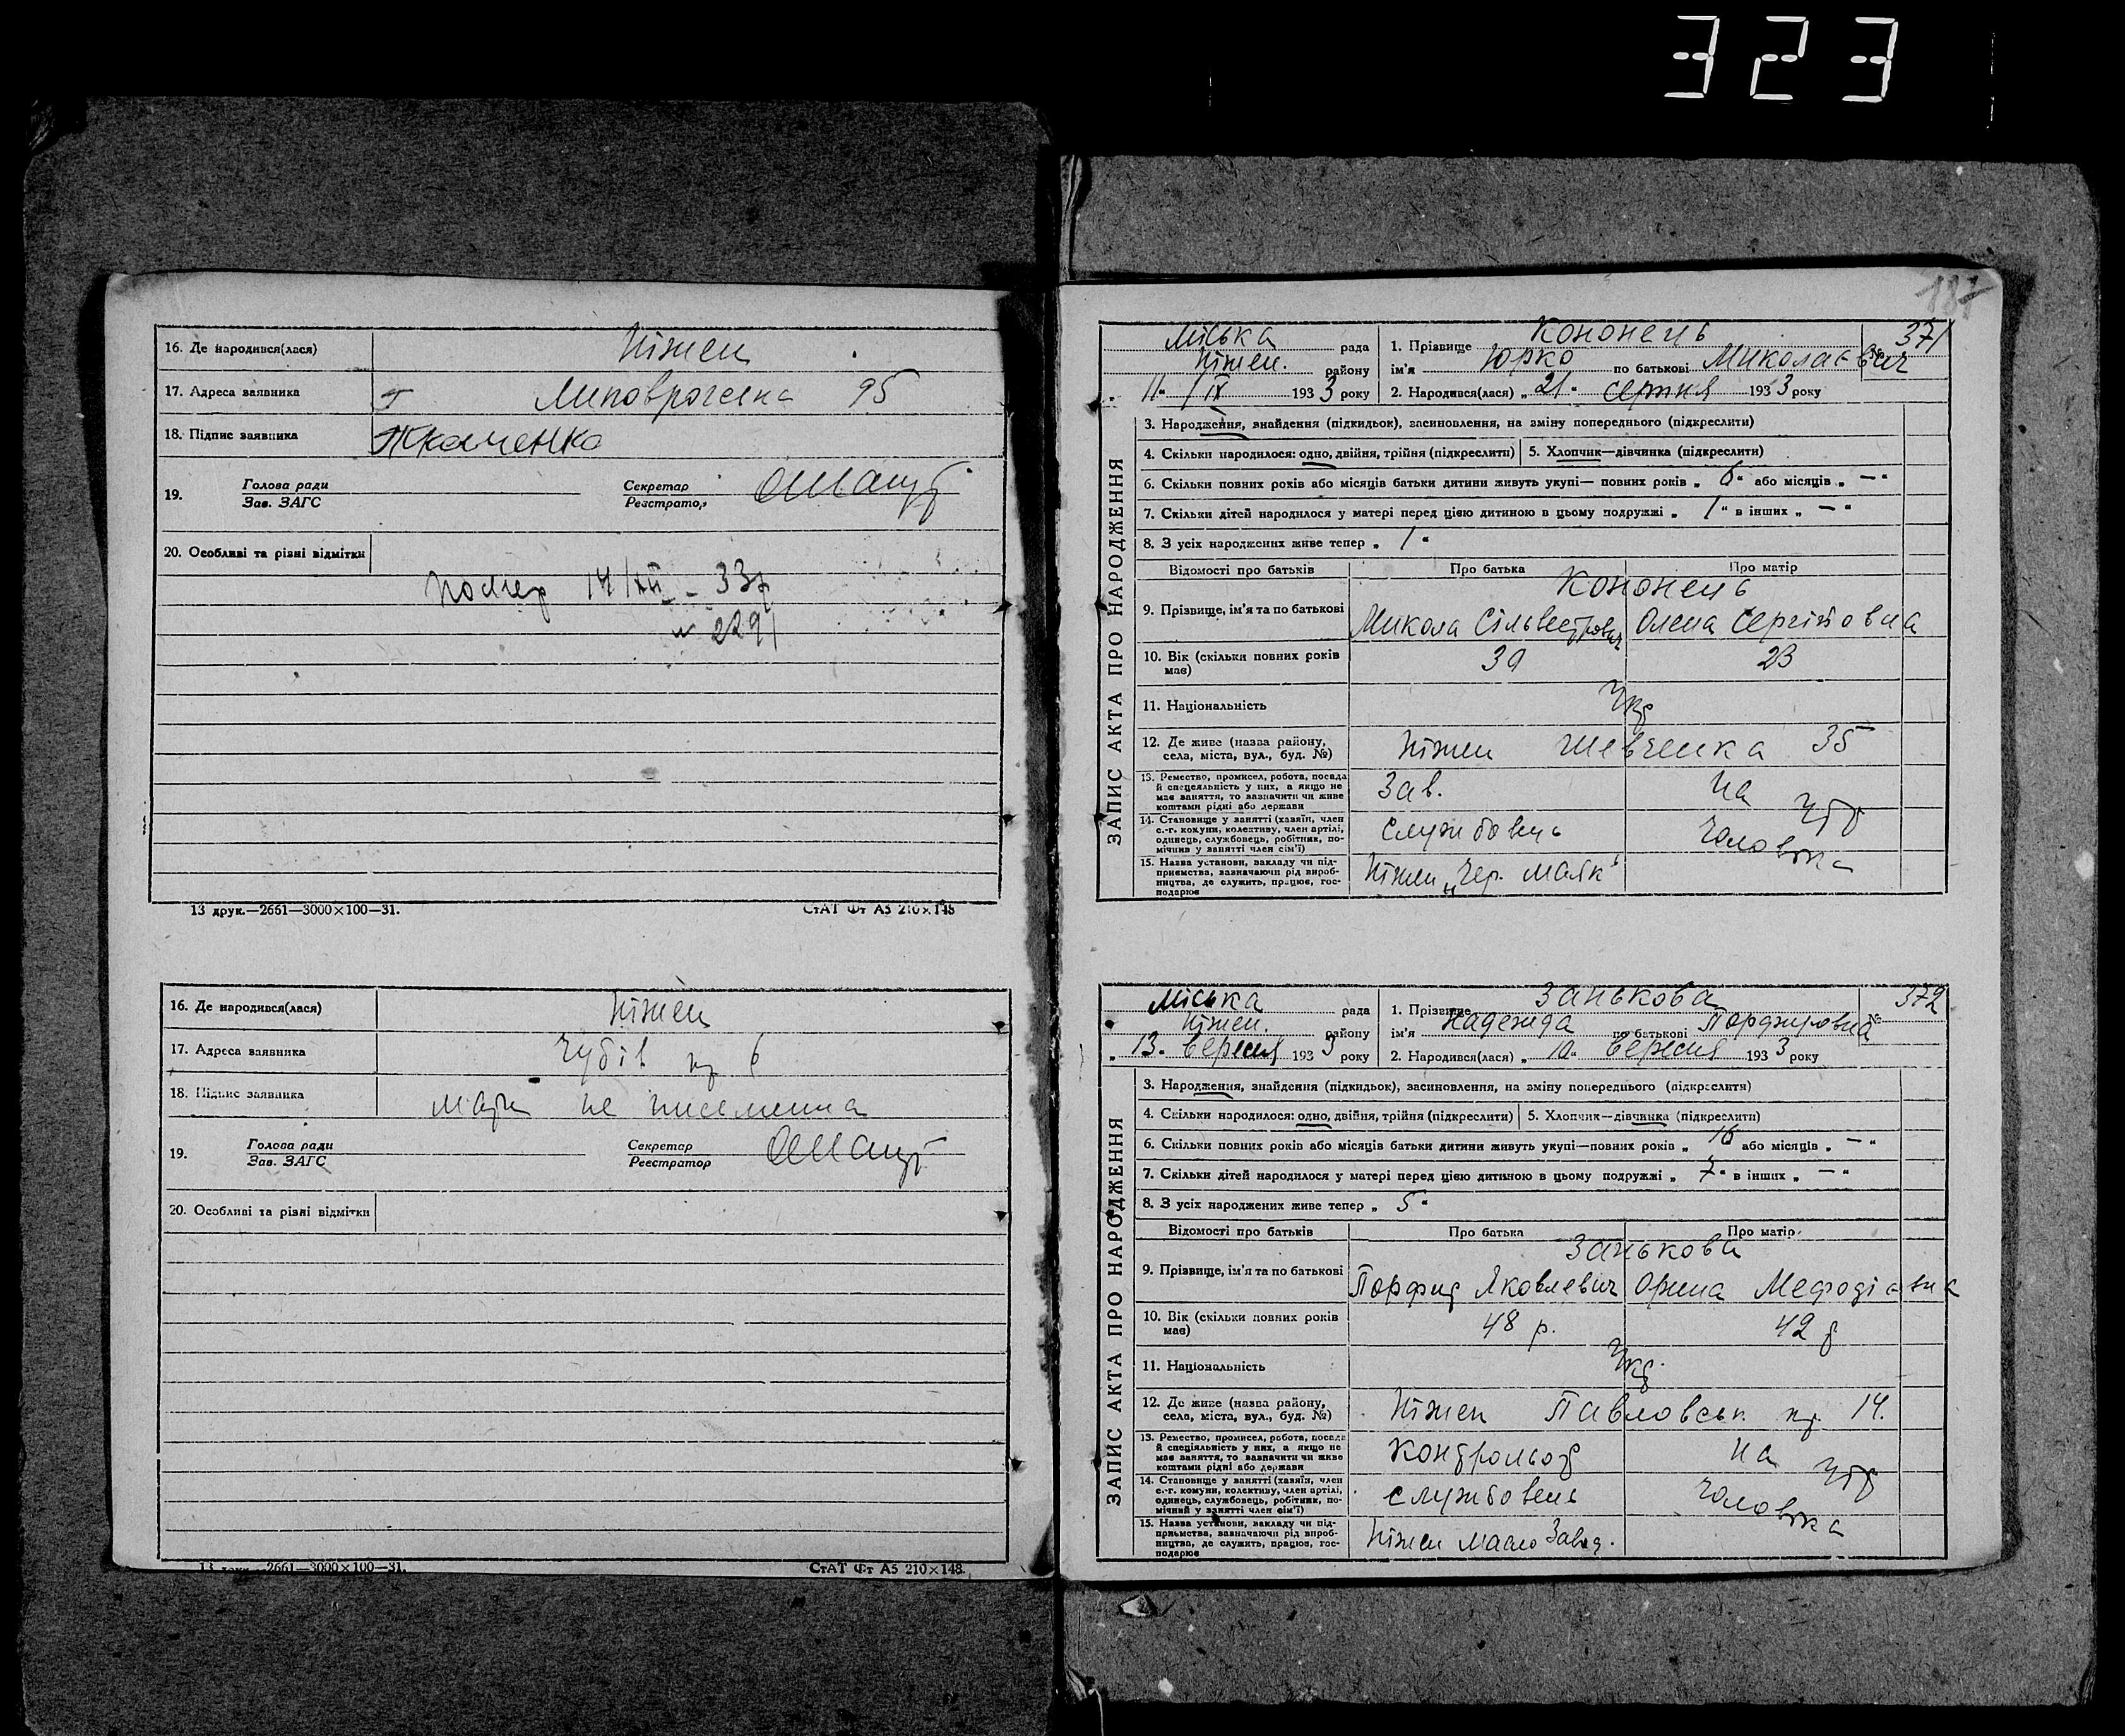 323
16. Де народився(лася) Ніжен
17. Адреса заявника Липоврогська 95
18. Підпис заявника Ткаченко
19. Голова ради
Зав. ЗАГС
Секретар
Реєстратор
20. Особливі та різні відмітки
помер 14/XII - 33р
№ 229
13 друк.—2661—3000×100—31. СтАТ Фт А5 210×148
16. Де народився(лася) Ніжен
17. Адреса заявника Чубів 6
18. Підпис заявника мати не письменна
19. Голова ради
Зав. ЗАГС
Секретар
Реєстратор
20. Особливі та різні відмітки
13 друк.—2661—3000×100—31. СтАТ Фт А5 210×148.
187
ЗАПИС АКТА ПРО НАРОДЖЕННЯ
Міська рада
Ніжен. району
„ 11 " / IX 1933 року
1. Прізвище Кононець № 371
ім'я Юрко по батькові Миколаєвич
2. Народився(лася) „ 21 " серпня 1933 року
3. Народження, знайдення (підкидьок), засиновлення, на зміну попереднього (підкреслити)
4. Скільки народилося: одно, двійня, трійня (підкреслити) 5. Хлопчик—дівчинка (підкреслити)
6. Скільки повних років або місяців батьки дитини живуть укупі— повних років „ 6 " або місяців „ — "
7. Скільки дітей народилося у матері перед цією дитиною в цьому подружжі „ 1 " в інших „ — "
8. З усіх народжених живе тепер „ 1 "
Відомості про батьків Про батька Про матір
Кононець
9. Прізвище, ім'я та по батькові Микола Сільвестрович Олена Сергіївовна
10. Вік (скільки повних років має) 39 23
11. Національність Укр
12. Де живе (назва району, села, міста, вул., буд. №) Ніжен Шевченка 35
13. Ремество, промисел, робота, посада й спеціяльність у них, а якщо не має заняття, то зазначити чи живе коштами рідні або держави Зав. На утр
14. Становище у занятті (хазяїн, член с.-г. комуни, колективу, член артілі, одинець, службовець, робітник, помічник у занятті член сім'ї) службовець чоловіка
15. Назва установи, закладу чи підприємства, зазначаючи рід виробництва, де служить, працює, господарює Ніжен „Чер. Маяк"
ЗАПИС АКТА ПРО НАРОДЖЕННЯ
Міська рада
Ніжен. району
„ 13 " вересня 1933 року
1. Прізвище Занькова № 372
ім'я Надежда по батькові Порфировна
2. Народився(лася) „ 10 " вересня 1933 року
3. Народження, знайдення (підкидьок), засиновлення, на зміну попереднього (підкреслити)
4. Скільки народилося: одно, двійня, трійня (підкреслити) 5. Хлопчик—дівчинка (підкреслити)
6. Скільки повних років або місяців батьки дитини живуть укупі—повних років „ 16 " або місяців „ — "
7. Скільки дітей народилося у матері перед цією дитиною в цьому подружжі „ 7 " в інших „ — "
8. З усіх народжених живе тепер „ 5 "
Відомості про батьків Про батька Про матір
Занькова
9. Прізвище, ім'я та по батькові Порфир Яковлевич Орина Мефодіевна
10. Вік (скільки повних років має) 48 р. 42 р
11. Національність Укр.
12. Де живе (назва району, села, міста, вул., буд. №) Ніжен Павловськ. пр. 14.
13. Ремество, промисел, робота, посада й спеціяльність у них, а якщо не має заняття, то зазначити чи живе коштами рідні або держави контрольор На утр
14. Становище у занятті (хазяїн, член с.-г. комуни, колективу, член артілі, одинець, службовець, робітник, помічний у занятті член сім'ї) службовець чоловіка
15. Назва установи, закладу чи підприємства, зазначаючи рід виробництва, де служить, працює, господарює Ніжен Масло Завод.